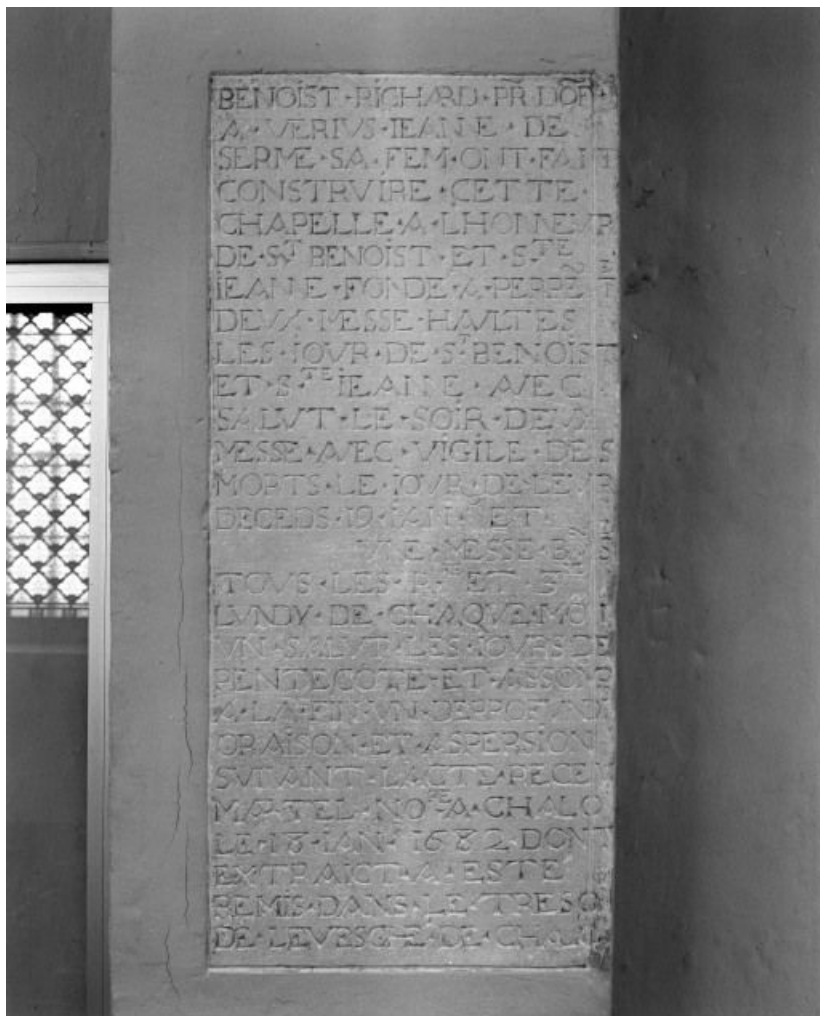 BENOIST · RICHARD · PR̃ DOR̃
A · VERIVS · IEANNE · DE
SERME · SA · FEM · ONT · FAIT
CONSTRVIRE · CETTE ·
CHAPELLE · A · LHONNEVR
DE · ST BENOIST · ET · STE
IEANNE · FONDE · A · PERPẼT
DEVX · MESSE · HAVLTES
LES · IOVR · DE · ST BENOIST
ET · STE IEANNE · AVEC
SALVT · LE · SOIR · DEVX
MESSE · AVEC · VIGILE · DES
MORTS · LE · IOVR · DE · LEVR
DECEDS · 19 · IAN · ET
VNE · MESSE · B
TOVS · LES · ET
LVNDY · DE · CHAQVE · MOI
VN · SALVT · LES · IOVRS DE
PENTECOTE · ET · ASSOMP
A · LA · FIN · VN · DEPROFVND
ORAISON · ET · ASPERSION
SVIVANT · LACTE · RECEV
MARTEL · NORE · A · CHALO
LE · 18 · IAN · 1682 · DONT
EXTRAICT · A · ESTE
REMIS · DANS · LE · TRESO
DE · LEVESCHE · DE · CHALN